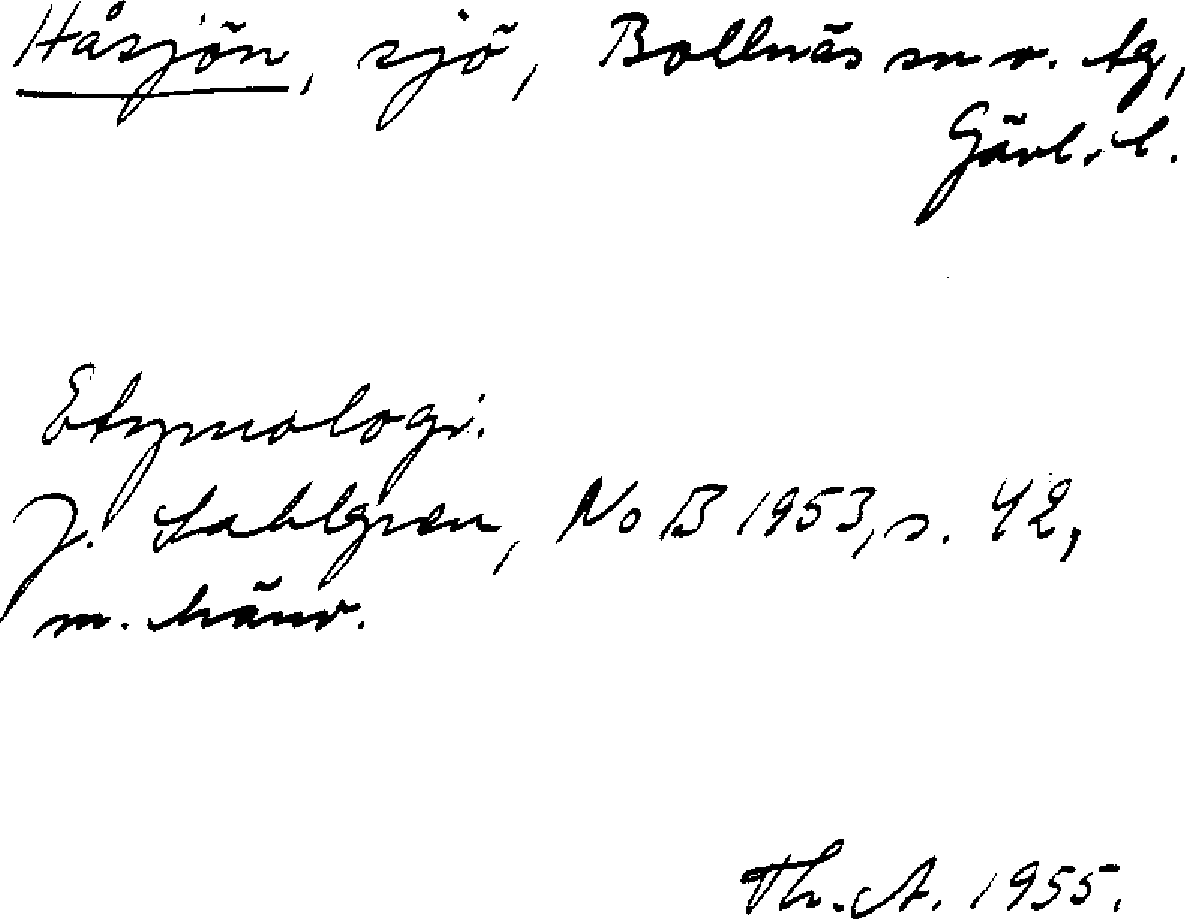 Håsjön, sjö, Bollnäs sn o. tg,
Gävl. l.
Etymologi.
J. Sahlgren, NoB 1953, s. 42,
m. hänv.
Th. A. 1955.